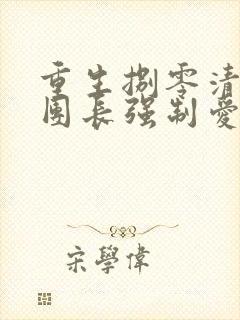 重生捌零清
團長强制愛
宋學偉